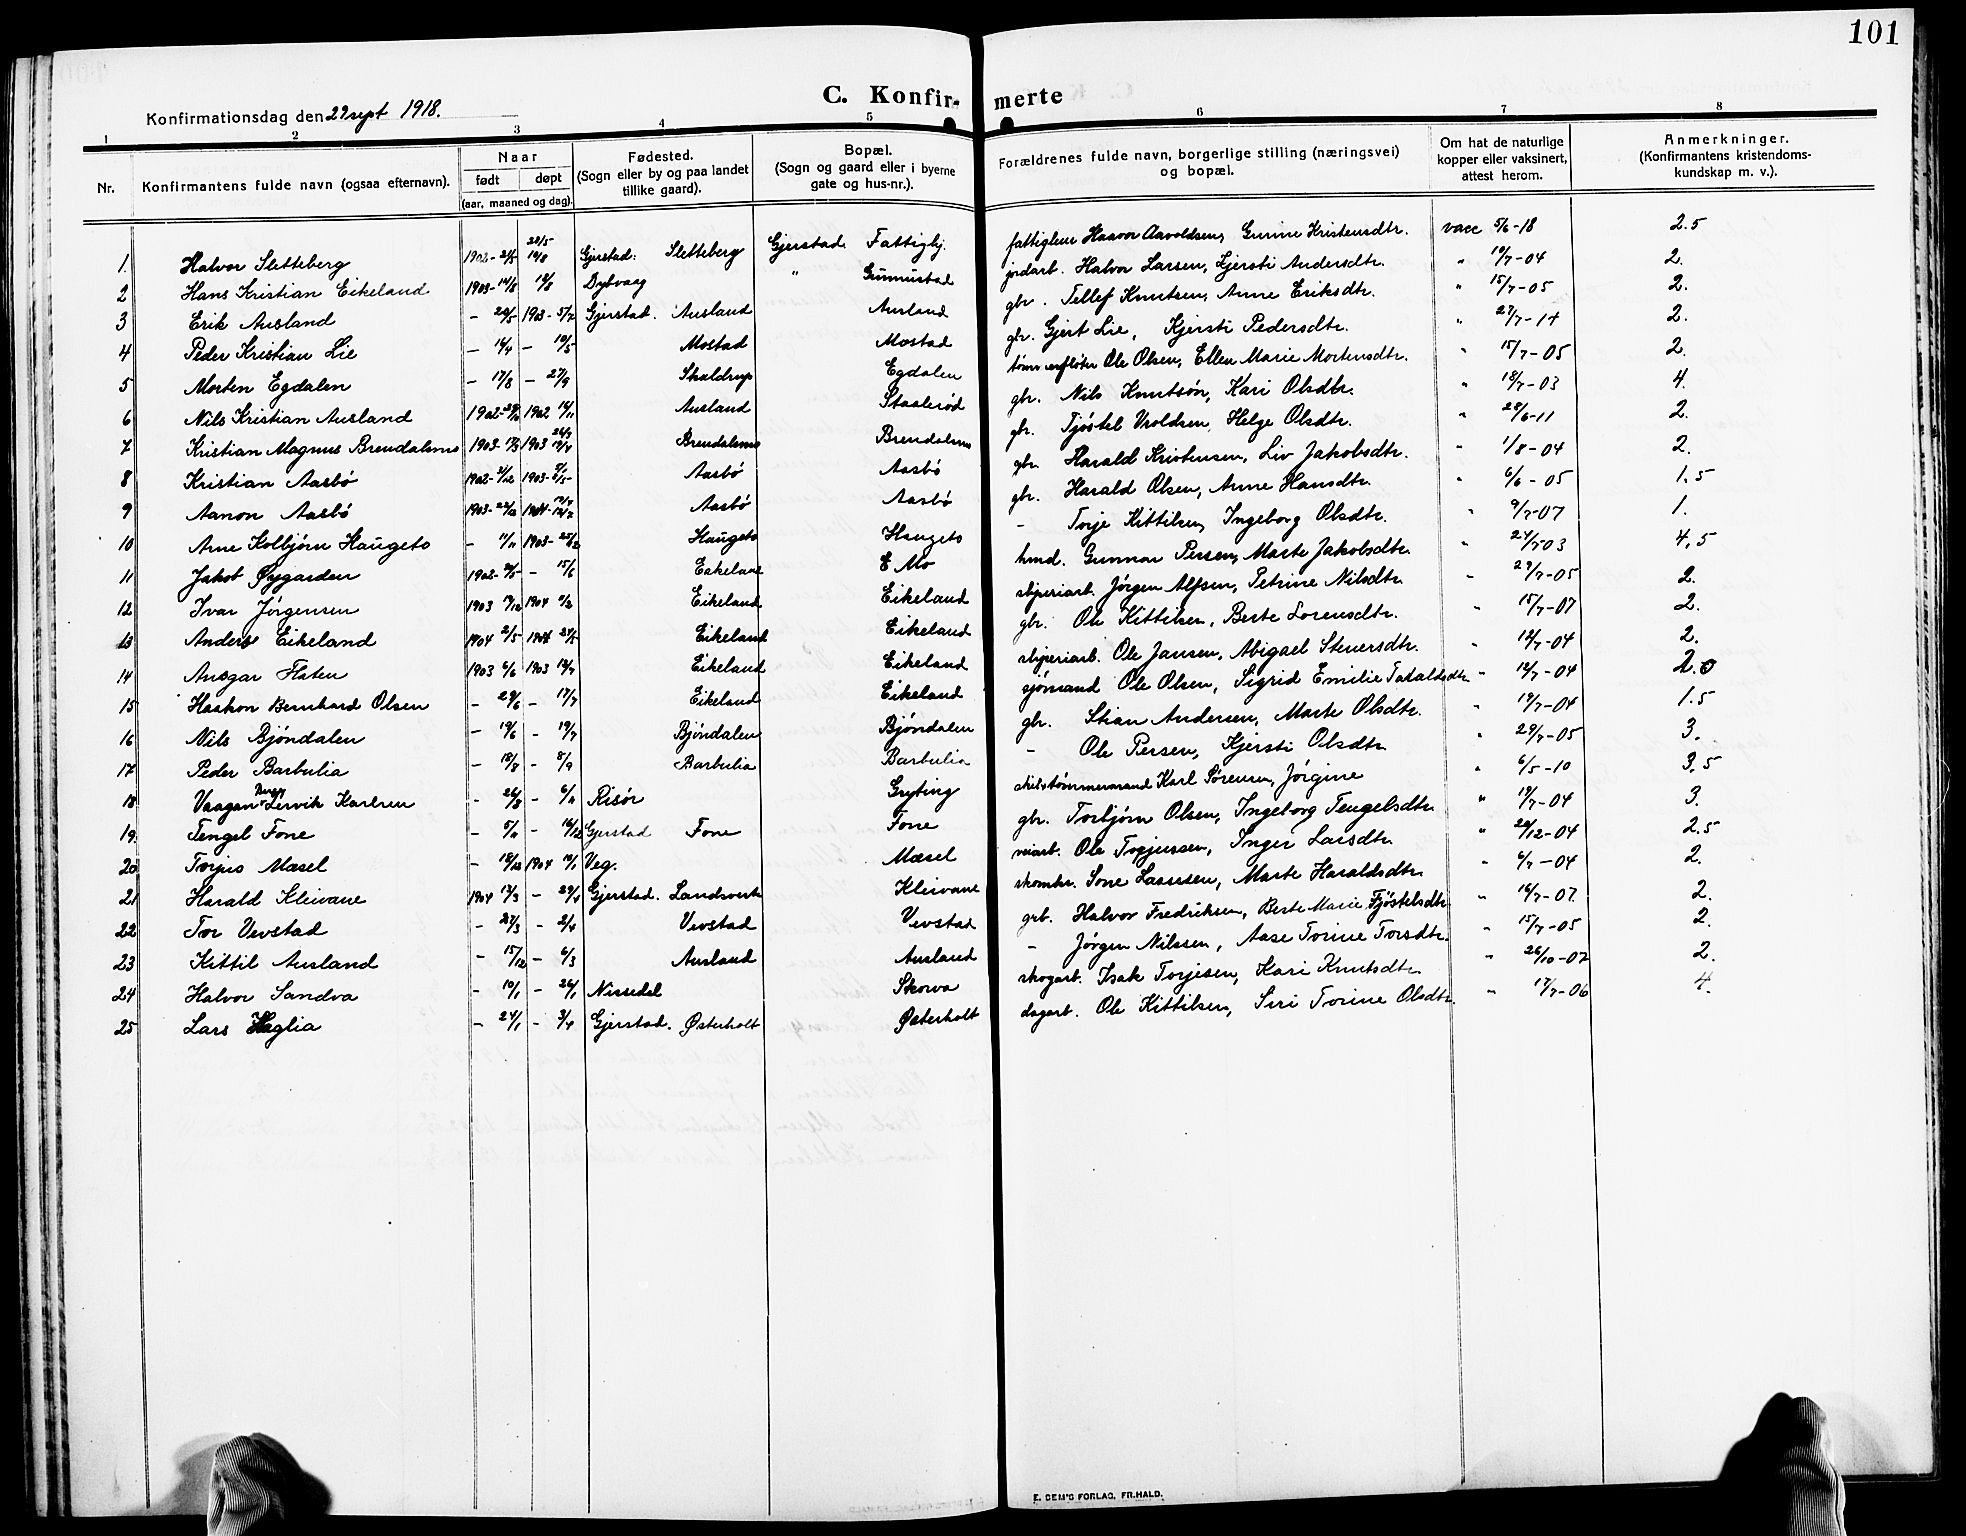 101
C. Konfir- merte
Konfirmationsdag den 29 sept 1918.
1 2 3 4 5 6 7 8
Nr. Konfirmantens fulde navn (ogsaa efternavn). Naar født døpt (aar, maaned og dag). Fødested. (Sogn eller by og paa landet tillike gaard). Bopæl. (Sogn og gaard eller i byerne gate og hus-nr.). Forældrenes fulde navn, borgerlige stilling (næringsvei) og bopæl. Om hat de naturlige kopper eller vaksinert, attest herom. Anmerkninger. (Konfirmantens kristendoms- kundskap m. v.).
1. Halvor Sletteberg Gjerstad: Sletteberg Gjerstad Fattiggj. Haavor Aavoldsen, Gurine Kristensdtr. vacc 5/6-18 2.5
2 Hans Kristian Eikeland 1903- Dybvaag " Gumustad jordarb. Halvor Larsen, Kjersti Andersdtr. " 19/7-04 2.
3 Erik Ausland - 20/5 1903- 5/7 Gjerstad. Ausland Ausland gbr. Tellef Knutsen, Anne Eriksdtr. " 15/7-05 2.
4 Peder Kristian Lie - 16/4 - 10/5 Mostad Mostad gbr. Gjert Lie, Kjersti Pedersdtr. " 27/7-14 2.
5 Morten Egdalen - 17/8 - 27/9 Skaldrup Egdalen Ole Olsen, Ellen Marie Mortensdtr. " 15/7-05 2.
6 Nils Kristian Ausland 1902- 1902 16/11 Ausland Staalerød gbr. Nils Knutsøn, Kari Olsdtr. " 18/7-03 4.
7 Kristian Magnus Brendalsmo 1903- 1903 Brendalsmo Brendalsmo gbr. Tjøstel Vroldsen, Helge Olsdtr. " 28/6-11 2.
8 Kristian Aasbø 1902- 1903- Aasbø Aasbø gbr. Harald Kristensen, Liv Jakobsdtr. " 1/8-04 2.
9 Aanon Aasbø 1903- 1904- Aasbø Aasbø gbr. Harald Olsen, Anne Hansdtr. " 6/6-05 1.5
10 Arne Kolbjørn Haugeto - 11/11 1903- 25/12 Haugeto Haugeto - Torje Kittilsen, Ingeborg Olsdtr. " 9/7-07 1.
11 Jakob Øygarden 1902- - 15/6 Eikeland E Mo hmd. Gunnar Persen, Marte Jakobsdtr. " 24/7-03 4.5
12 Ivar Jørgensen 1903 19/12 1904 Eikeland Eikeland sliperiarb. Jørgen Alfsen, Petrine Nilsdtr. " 29/7-05 2.
13 Anders Eikeland 1904 2/5 1904 Eikeland Eikeland gbr. Ole Kittilsen, Berte Lorensdtr. " 15/7-07 2.
14 Ansgar Flaten 1903 6/6 1903 Eikeland Eikeland sliperiarb. Ole Jansen, Abigael Stenersdtr. " 18/7-04 2.
15 Haakon Bernhard Olsen - 29/6 - 17/7 Eikeland Eikeland sjømand Ole Olsen, Sigrid Emilie " 14/7-04 2.0
16 Nils Bjøndalen - 19/6 - 19/7 Bjøndalen Bjøndalen gbr. Stian Andersen, Marte Olsdtr. " 19/7-04 1.5
17 Peder Barbulia - 18/8 - 8/9 Barbulia Barbulia - Ole Persen, Kjersti Olsdtr " 29/7-05 3.
18 Vaagan Lervik Karlsen - 26/8 - 6/11 Risør Gryting skibstømmermand Karl Sørensen, Jørgine " 6/5-10 3.5
19. Tengel Fone - 5/11 - 16/12 Gjerstad Fone Fone gbr. Torbjørn Olsen, Ingeborg Tengelsdtr. " 19/7-04 3.
20 Torjus Mæsel - 18/12 1904 10/1 Veg. Mæsel veiarb. Ole Torjussen, Inger Larsdtr. " 20/12-04 2.5
21 Harald Kleivane 1904 13/3 - 29/4 Gjerstad. Landsverk Kleivane skomkr. Sone Lassesen, Marte Haraldsdtr. " 6/7-04 2.
22 Tor Vevstad - 27/3 - 2/4 Vevstad Vevstad grb. Halvor Fredriksen, Berte Marie Tjøstelsdtr " 16/7-07. 2.
23 Kittil Ausland - 15/12 - 6/3 Ausland Ausland - Jørgen Nilssen, Aase Torine Torsdtr. " 15/7-05 2.
24 Halvor Sandva - 10/1 - 26/1 Nissedal Skorva skogarb. Isak Torjesen, Kari Knutsdtr " 26/10-07 2.
25 Lars Haglia - 24/1 - 3/4 Gjerstad. Østerholt Østerholt dagarb. Ole Kittilsen, Siri Torine Olsdtr. " 17/7-06 4.
E. SEM'S FORLAG, FR.HALD.